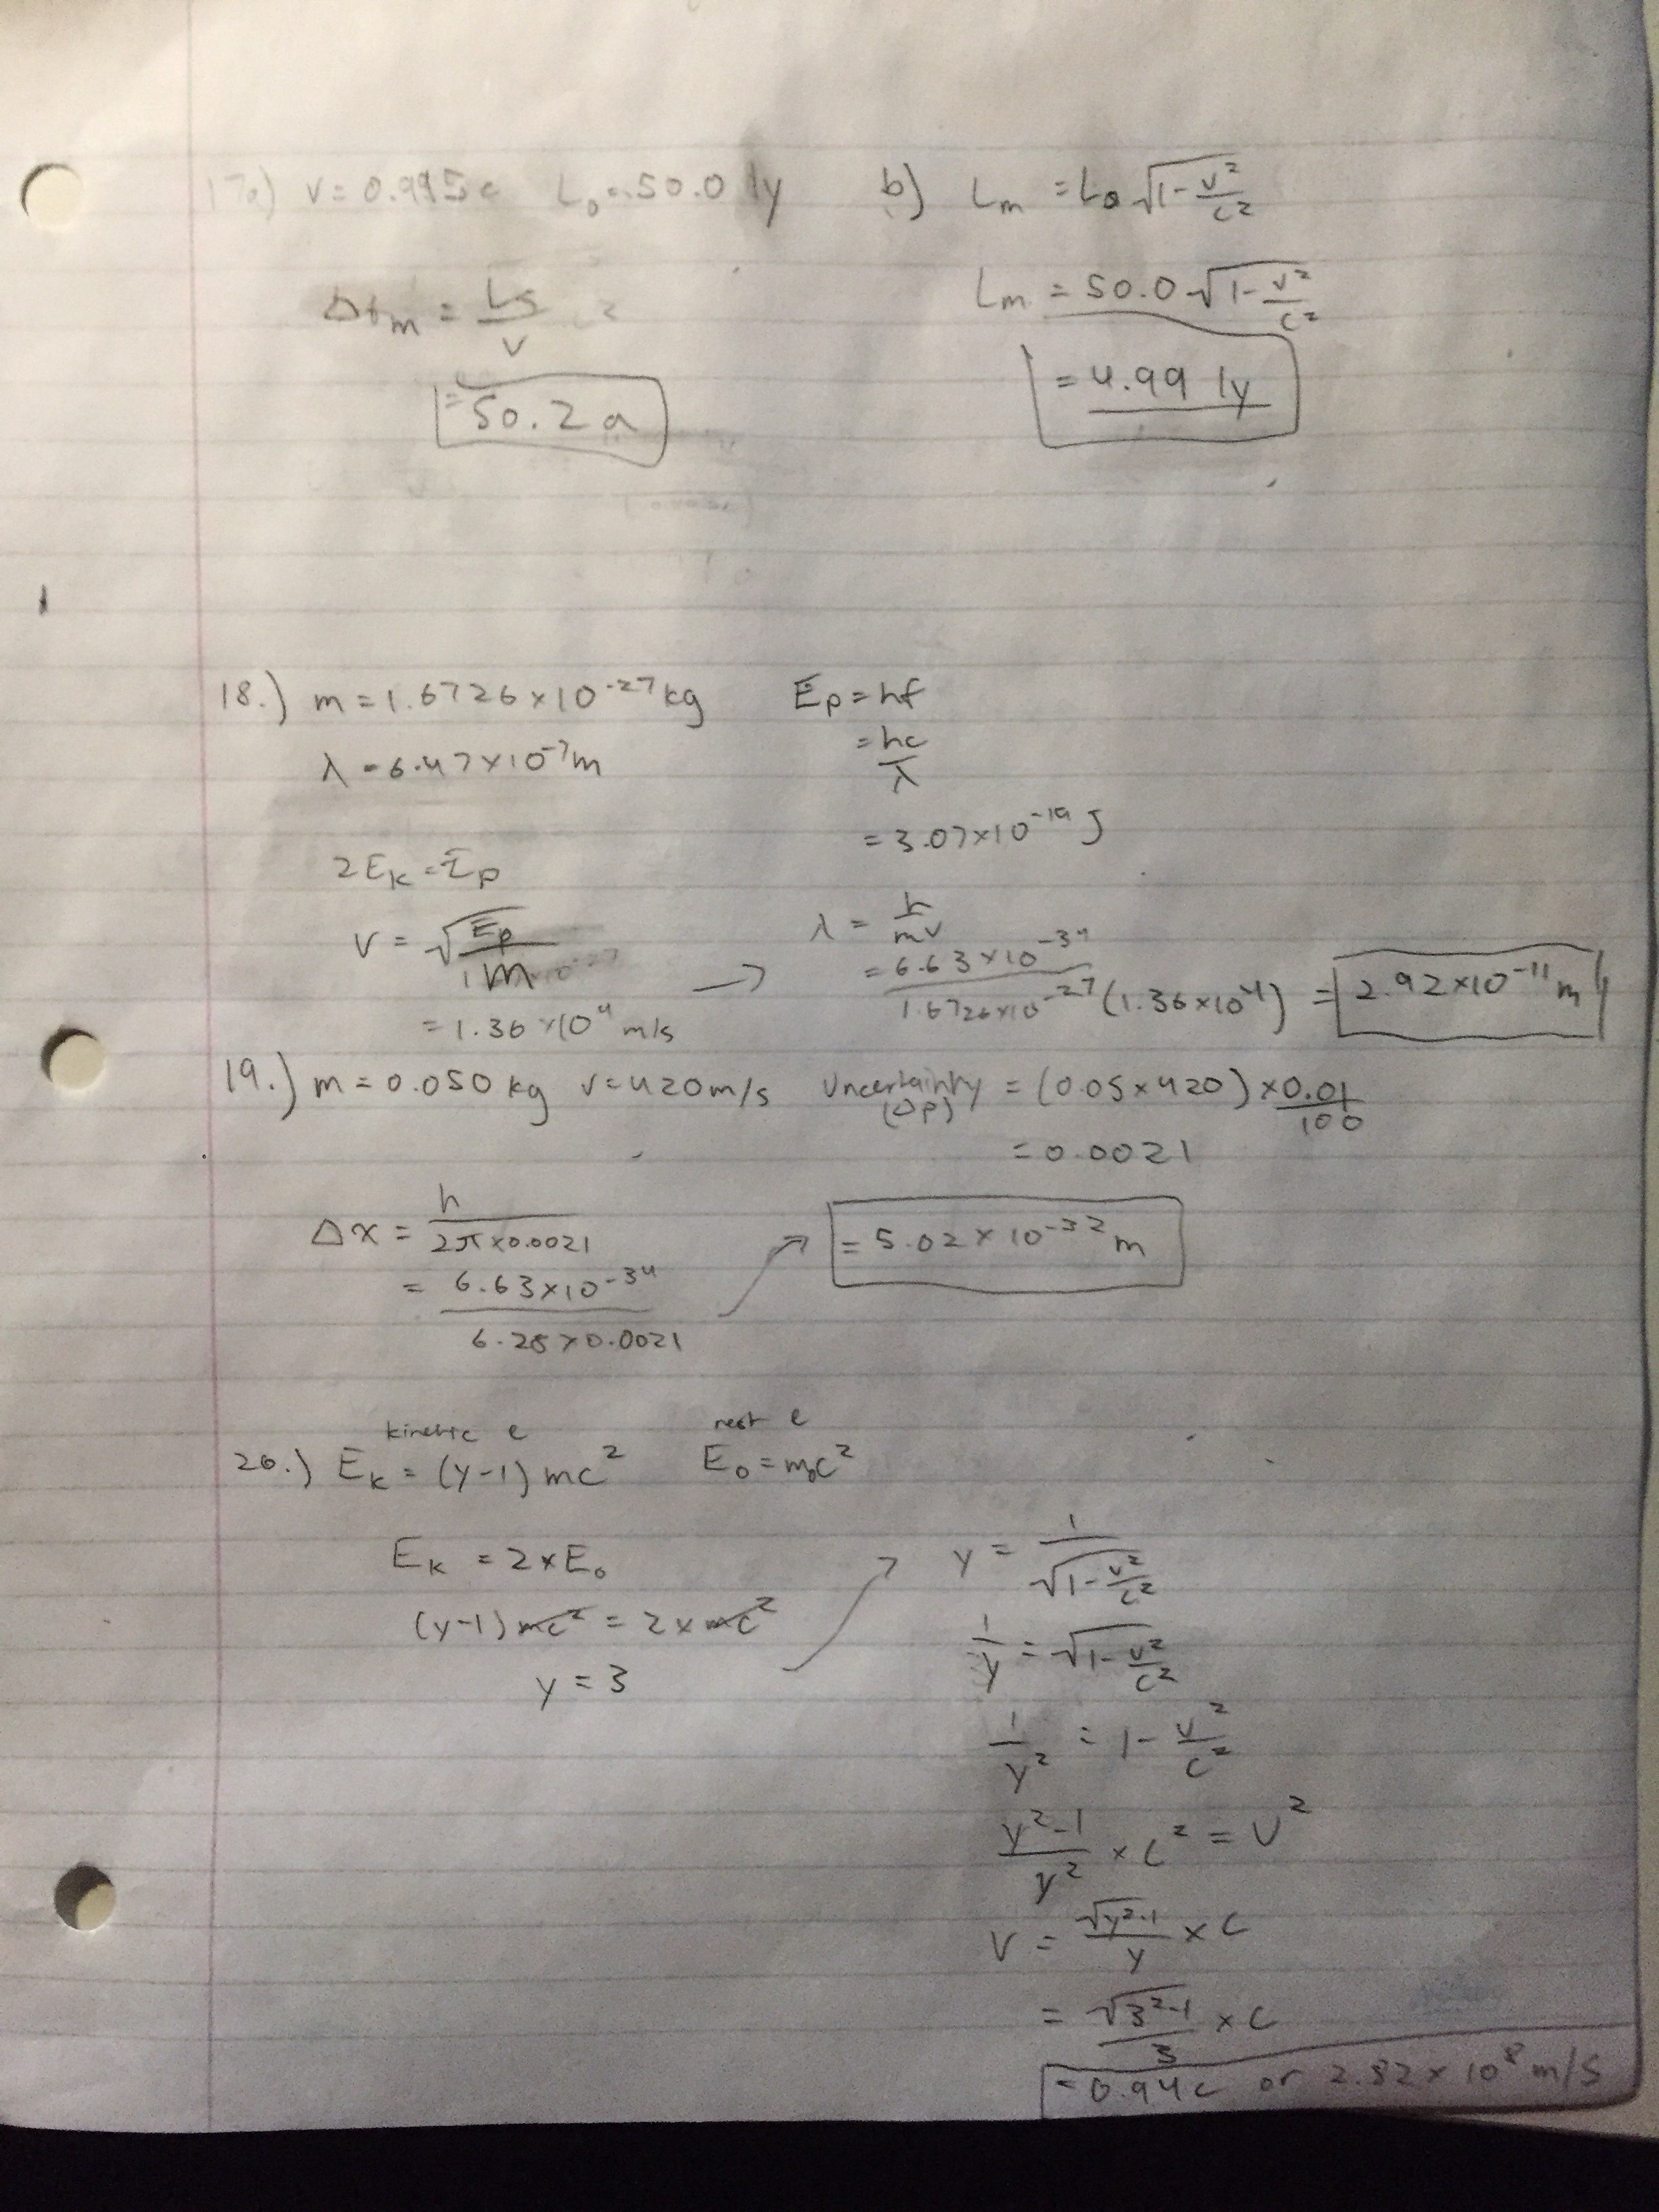 17a) v = 0.995c L₀ = 50.0 ly
Δtm = Ls/v
= 50.2 a
b) Lm = L₀ √(1 - v²/c²)
Lm = 50.0 √(1 - v²/c²)
= 4.99 ly
18.) m = 1.6726 × 10⁻²⁷ kg
λ = 6.47 × 10⁻⁷ m
Ep = hf
= hc/λ
= 3.07 × 10⁻¹⁹ J
2Ek = Ep
v = √(Ep/1m)
= 1.36 × 10⁴ m/s →
λ = h/mv
= 6.63 × 10⁻³⁴ / 1.6726 × 10⁻²⁷ (1.36 × 10⁴) = 2.92 × 10⁻¹¹ m
19.) m = 0.050 kg v = 420 m/s Uncertainty (Δp) = (0.05 × 420) × 0.01/100
= 0.0021
Δx = h / 2π × 0.0021
= 6.63 × 10⁻³⁴ / 6.28 × 0.0021
= 5.02 × 10⁻³² m
kinetic e rest e
20.) Ek = (y - 1) mc² E₀ = m₀c²
Ek = 2 × E₀
(y - 1) mc² = 2 × mc²
y = 3
y = 1 / √(1 - v²/c²)
1/y = √(1 - v²/c²)
1/y² = 1 - v²/c²
y² - 1 / y² × c² = v²
v = √(y² - 1) / y × c
= √(3² - 1) / 3 × c
= 0.94c or 2.82 × 10⁸ m/s